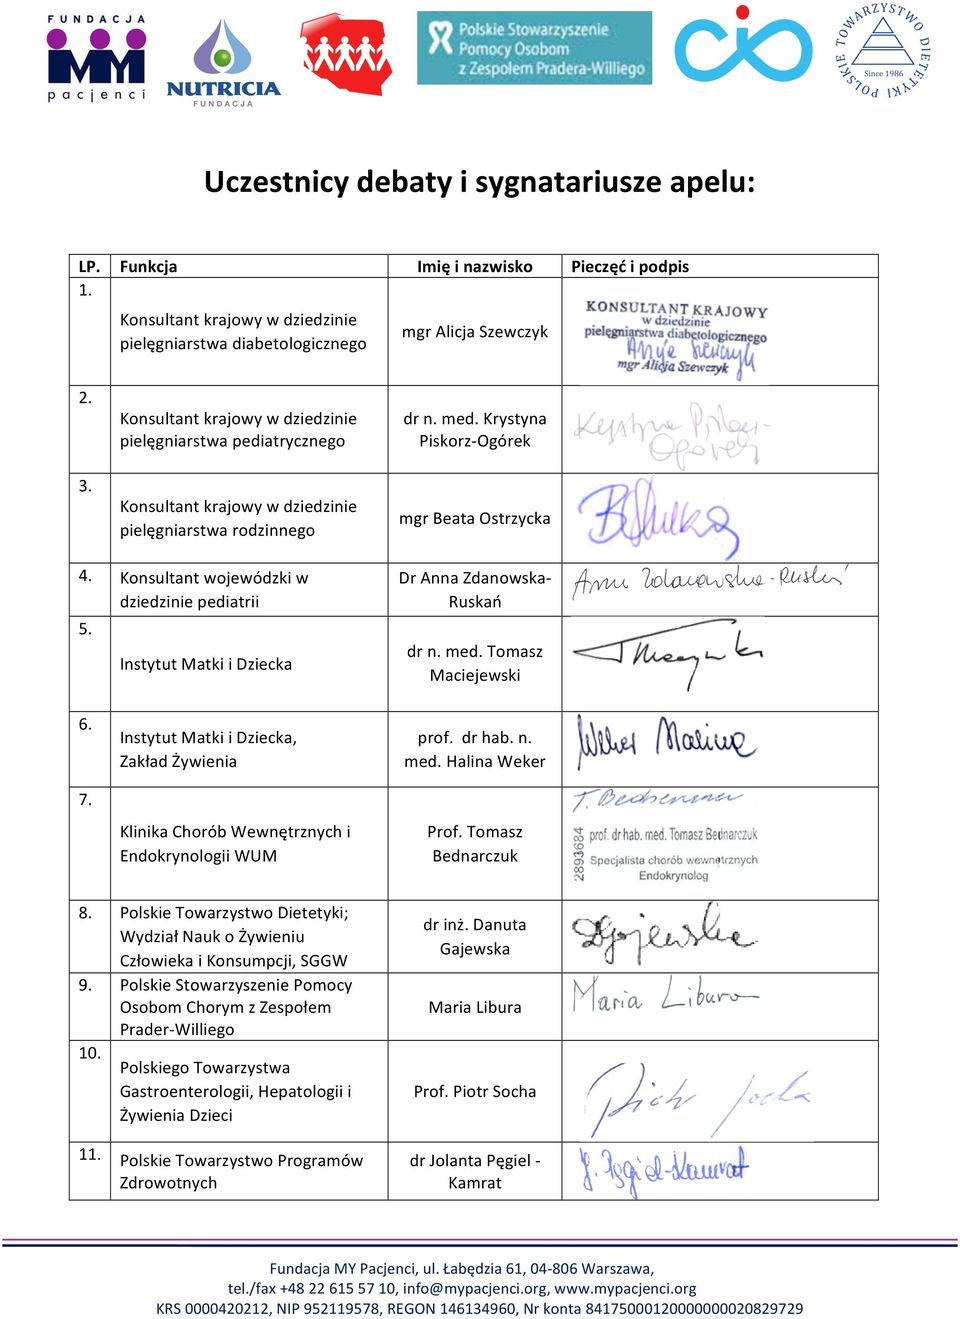 FUNDACJA
MY
pacjenci
NUTRICIA
FUNDACJA
Polskie Stowarzyszenie
Pomocy Osobom
z Zespołem Pradera-Williego
POLSKIE TOWARZYSTWO DIETETYKI
Since 1986
Uczestnicy debaty i sygnatariusze apelu:
LP. Funkcja Imię i nazwisko Pieczęć i podpis
1.
Konsultant krajowy w dziedzinie
pielęgniarstwa diabetologicznego
mgr Alicja Szewczyk
KONSULTANT KRAJOWY
w dziedzinie
pielęgniarstwa diabetologicznego
mgr Alicja Szewczyk
2.
Konsultant krajowy w dziedzinie
pielęgniarstwa pediatrycznego
dr n. med. Krystyna
Piskorz-Ogórek
Krystyna Piskorz-
Ogórek
3.
Konsultant krajowy w dziedzinie
pielęgniarstwa rodzinnego
mgr Beata Ostrzycka
4.
Konsultant wojewódzki w
dziedzinie pediatrii
Dr Anna Zdanowska-
Ruskań
Anna Zdanowska-Ruskań
5.
Instytut Matki i Dziecka
dr n. med. Tomasz
Maciejewski
6.
Instytut Matki i Dziecka,
Zakład Żywienia
prof. dr hab. n.
med. Halina Weker
Weker Halina
7.
Klinika Chorób Wewnętrznych i
Endokrynologii WUM
Prof. Tomasz
Bednarczuk
T. Bednarczuk
2893684
prof. dr hab. med. Tomasz Bednarczuk
Specjalista chorób wewnętrznych
Endokrynolog
8.
Polskie Towarzystwo Dietetyki;
Wydział Nauk o Żywieniu
Człowieka i Konsumpcji, SGGW
dr inż. Danuta
Gajewska
DGajewska
9.
Polskie Stowarzyszenie Pomocy
Osobom Chorym z Zespołem
Prader-Williego
Maria Libura
Maria Libura
10.
Polskiego Towarzystwa
Gastroenterologii, Hepatologii i
Żywienia Dzieci
Prof. Piotr Socha
Piotr Socha
11.
Polskie Towarzystwo Programów
Zdrowotnych
dr Jolanta Pęgiel -
Kamrat
J. Pęgiel-Kamrat
Fundacja MY Pacjenci, ul. Łabędzia 61, 04-806 Warszawa,
tel./fax +48 22 615 57 10, info@mypacjenci.org, www.mypacjenci.org
KRS 0000420212, NIP 952119578, REGON 146134960, Nr konta 84175000120000000020829729